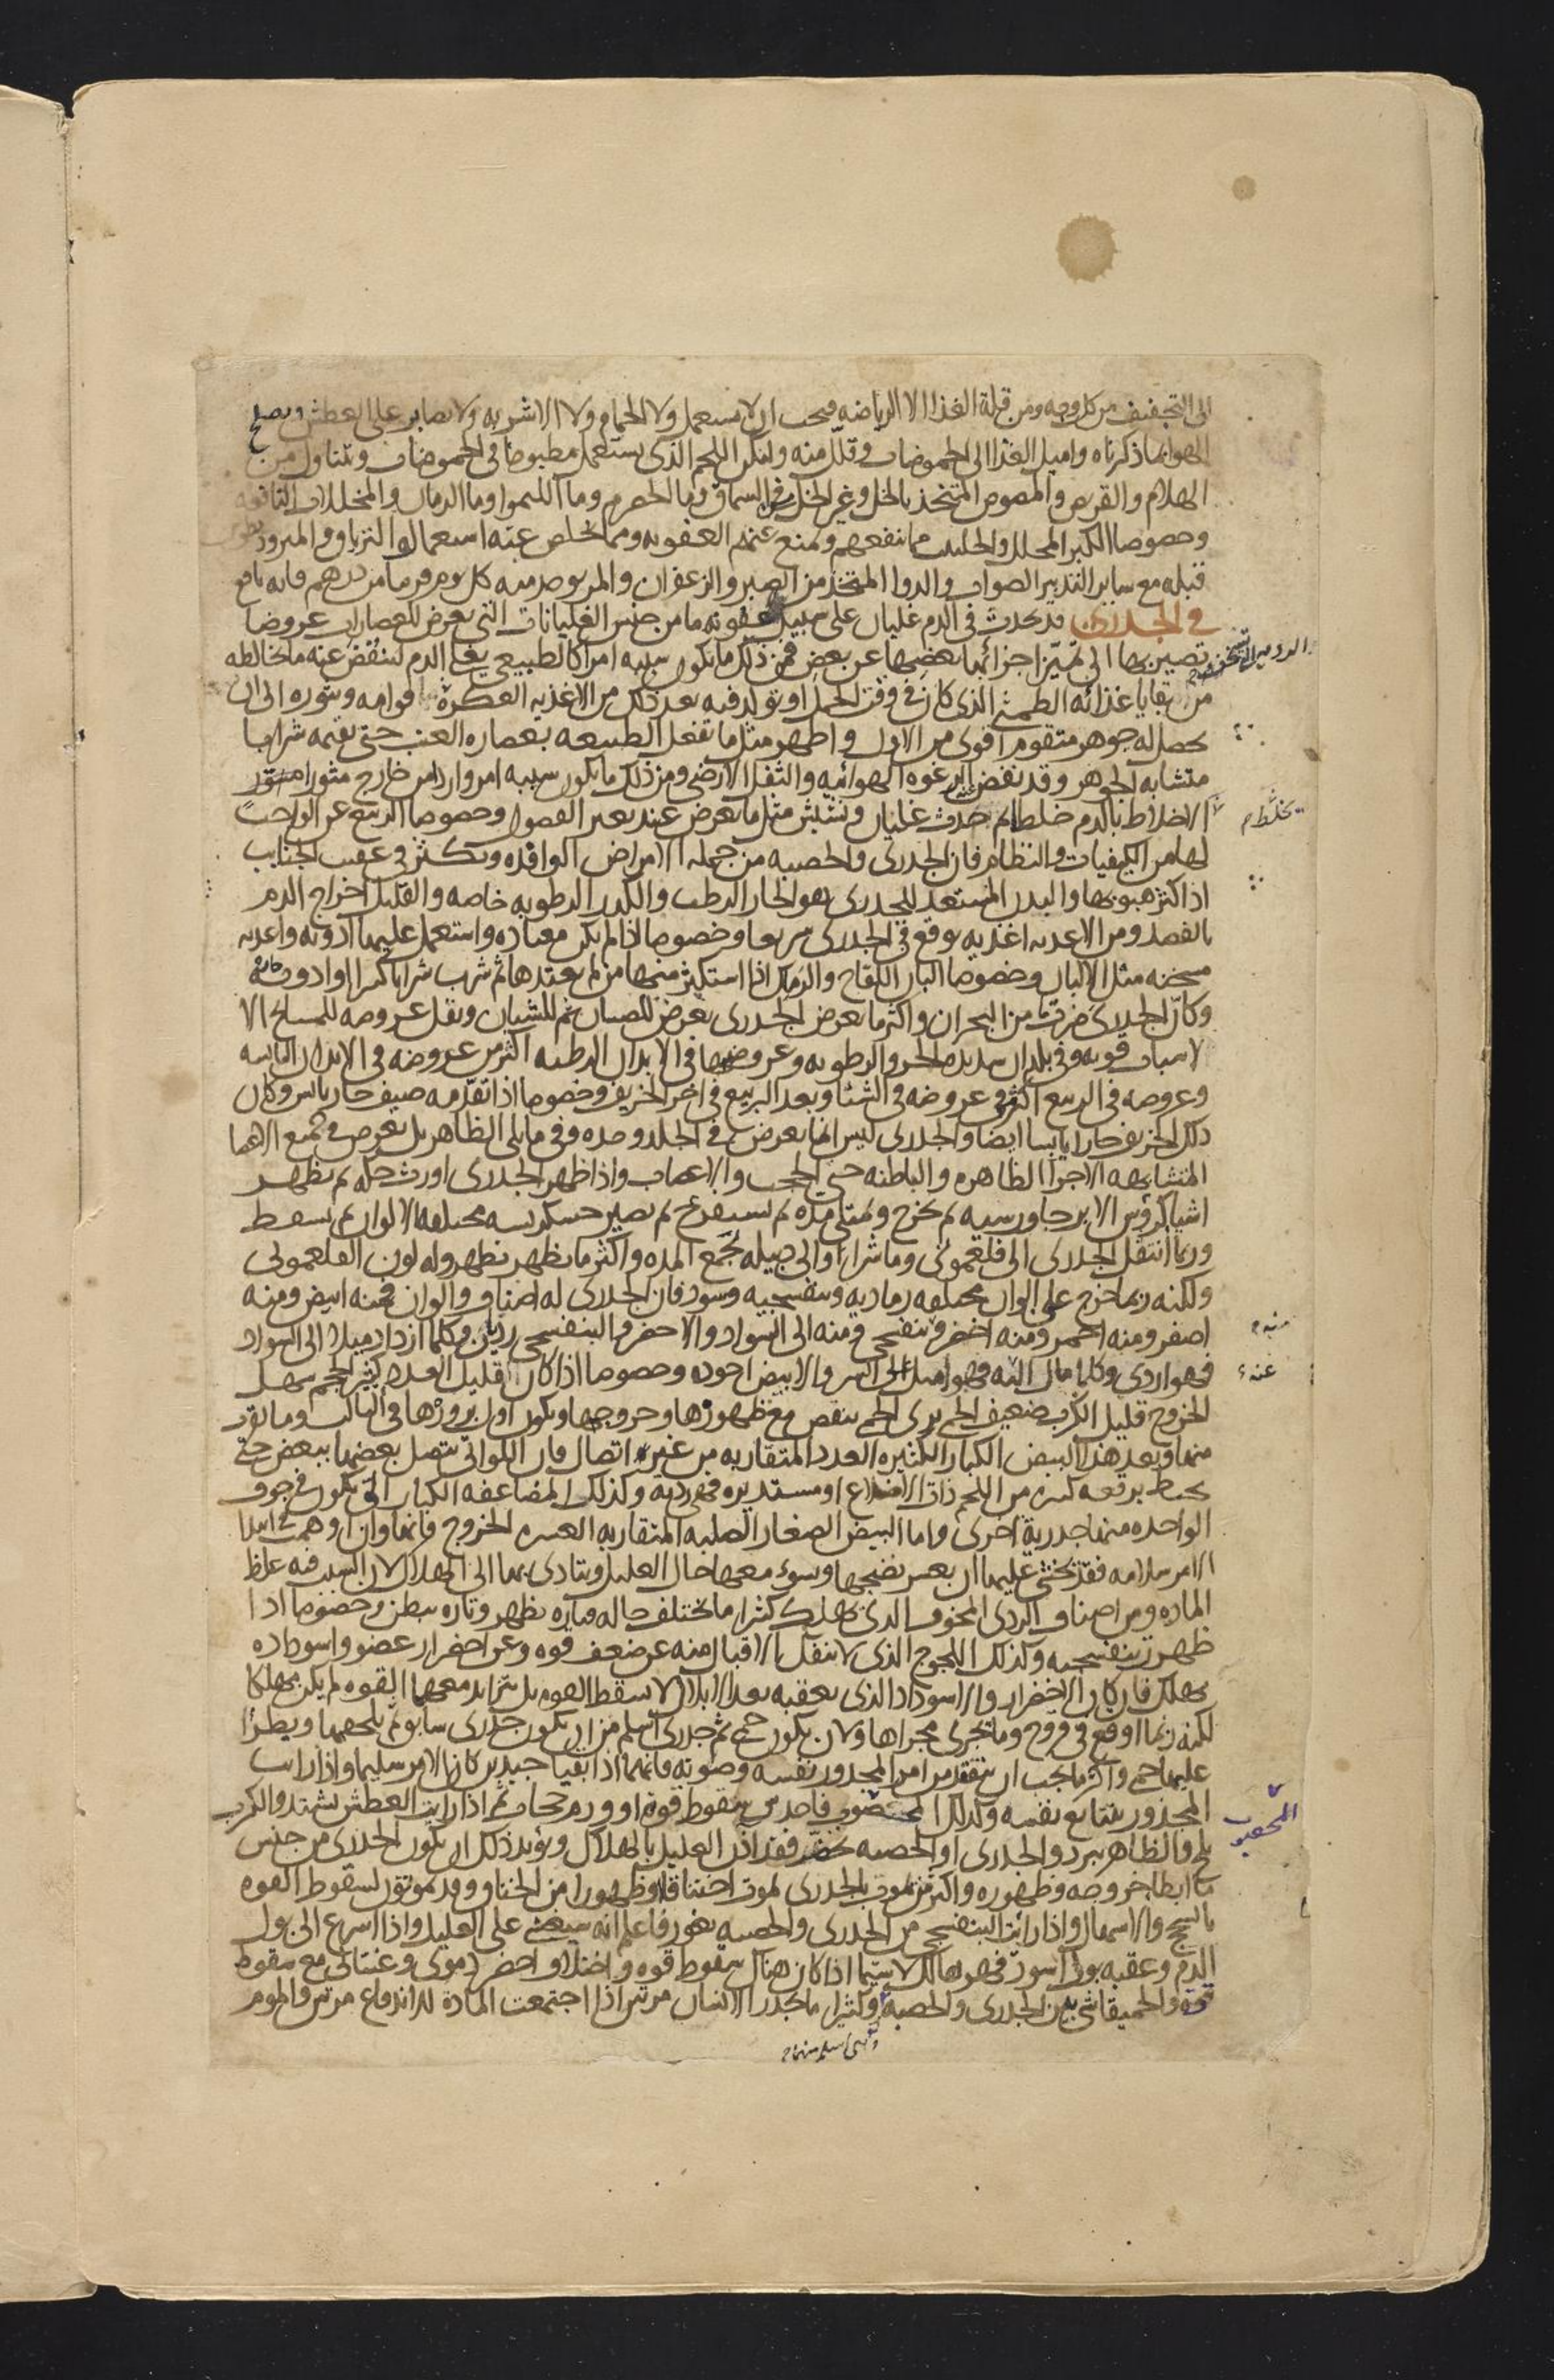 الى التجفيف من كل وجه ومن قلة الغذا الا الرياضه فيجب ان لا يستعمل ولا الحمام ولا الاشربه ولا يصابر على العطش ويصلح
الهوا بما ذكرناه واميل الغذا الى الحموضات وقلل منه وليكن اللحم الذى يستعمل مطبوخا فى الحموضات ويتناول من
الهلام والقريص والمصوص المتخذ بالخل وغير الخل من السماق وما الحصرم وما الليموا وما الرمان والمخللات النافعه
وخصوصا الكبر المخلل والحلتيت مما ينفعهم ويمنع عنهم العفونه ومما يخلص عنه استعمال الترياق والمبرود
قبله مع ساير التدبير الصواب والدوا المتخذ من الصبر والزعفران والمر يوخذ منه كل يوم قريبا من درهم فانه نافع
فى الجدرى قد يحدث فى الدم غليان على سبيل عفونه ما من جنس الغليانات التى يعرض للعصارات عروضا
تصير بها الى تميز اجزائها بعضها عن بعض فمن ذلك ما يكون سببه امرا كالطبيعى يغلى الدم لينفض عنه ما يخالطه
من بقايا غذائه الطمثى الذى كان فى وقت الحمل او تولد فيه بعد ذلك من الاغذيه العكرة قوامه ويثوره الى ان
يحصل له جوهر متقوم اقوى من الاول واظهر مثل ما تفعل الطبيعه بعصاره العنب حتى تقيمه شرابا
متشابه الجوهر وقد نفض الرغوه الهوائيه والثفل الارضى ومن ذلك ما يكون سببه امر وارد من خارج مثورا
الاخلاط بالدم خلطا ثم حدث غليان ونشيش مثل ما يعرض عند تغير الفصول وخصوصا الربيع عن الواجب
يخلط
لها من الكيفيات والنظام فان الجدرى والحصبه من جمله الامراض الوافده وتكثر فى عقيب الجنايب
اذا كثر هبوبها والبدن المستعد للجدرى هو الحار الرطب والكدر الرطوبه خاصه والقليل اخراج الدم
بالفصد ومن الاغديه اغديه يوقع فى الجدرى سريعا وخصوصا اذا لم يكن معتاده واستعمل عليها ادويه واغديه
مسخنه مثل الالبان وخصوصا البان اللقاح والرماك اذا استكثر منها من لم يعتدها ثم شرب شرابا كثيرا او ادويه
وكان الجدرى ضرب من البحران واكثر ما يعرض الجدرى يعرض للصبيان ثم للشبان ويقل عروضه للمسايخ الا
لاسباب قويه وفى بلدان شديده الحر والرطوبه وعروضها فى الابدان الرطبه اكثر من عروضه فى الابدان اليابسه
وعروضه فى الربيع اكثر من عروضه فى الشتا وبعد الربيع فى اخر الخريف وخصوصا اذا تقدمه صيف حار يابس وكان
ذلك الخريف حارا يابسا ايضا والجدرى ليس انما يعرض فى الجلد وحده وفى ما يلى الظاهر بل يعرض فى جميع الاعضا
المتشابهه الاجزا الظاهره والباطنه حتى الحجب والاعصاب واذا ظهر الجدرى اورث حكه ثم تظهر
اشيا كروس الابر جاورسيه ثم تخرج وتمتلى مده ثم تستفرغ ثم تصير خشكريشه مختلفه الالوان ثم تسقط
وربما انتقل الجدرى الى فلغمونى وماشرا او الى جبيله تجمع المده واكثر ما يظهر تظهر وله لون الفلغمونى
ولكنه ربما خرج على الوان مختلفه رماديه وبنفسجيه وسود فان الجدرى له اصناف والوان فمنه ابيض ومنه
اصفر ومنه احمر ومنه اخضر وبنفسجى ومنه الى السواد والاخضر والبنفسجى رديان وكلما ازداد ميلا الى السواد
فهو اردى وكلما مال عنه فهو اميل الى السر والابيض اجوده وخصوصا اذا كان قليل العدد كبير الحجم سهل
الخروج قليل الكرب ضعيف الحمى يرى الحمى تنقص مع ظهورها وخروجها ويكون اول بروزها فى الثالث وما يقرب
منها وبعد هذا البيض الكبار الكثيره العدد المتقاربه من غير اتصال فان اللواتى يتصل بعضها ببعض حتى
يحيط برقعه كبيره من اللحم ذات الاضلاع او مستديره فهى رديه وكذلك المضاعفه الكبار التى يكون فى جوف
الواحده منها جدرية اخرى واما البيض الصغار الصلبه المتقاربه العسره الخروج فانها وان اوهمت
الامر سلامه فقد يخشى عليها ان يعسر نضجها ويسوء معها حال العليل ويتادى بها الى الهلاك لان السبب فيه غلظ
الماده ومن اصناف الردى المخوف الذى يهلك كثيرا ما يختلف حاله فتاره يظهر وتاره يبطن وخصوصا اذا
ظهر بنفسجيه وكذلك اللجوج الذى لا ينتقل بالاقبال منه عن ضعف قوه وعن اخضرار عضو واسوداده
يهلك فان كان الاخضرار والاسوداد الذى يعقبه بعد الابلال لا يسقط القوه بل يتزايد معها القوه لم يكن مهلكا
لكنه ربما اوقع فى قروح وما يجرى مجراها ولان يكون حمى ثم جدرى اسلم من ان يكون جدرى سابق ثم يلحقها ويطرا
عليها حمى واكثر ما يجب ان يتفقد من امر المجدور نفسه وصوته فانهما اذا بقيا جيدين كان الامر سليما واذا رايت
المجدور يتتابع نفسه وكذلك المحصوب فاحدس سقوط قوة او ورم حجاب ثم اذا رايت العطش يشتد والكرب
المحصوب
يلح والظاهر يبرد والجدرى او الحصبه يخضر فقد اذن العليل بالهلاك ويؤيد ذلك ان يكون الجدرى من جنس
ما ابطا خروجه وظهوره واكثر من يموت بالجدرى يموت اختناقا وظهورا من الخناق وقد يموتون لسقوط القوه
بالسحج والاسهال واذا رايت البنفسجى من الجدرى والحصبه يغور فاعلم انه سيغشى على العليل واذا اسرع الى بول
الدم وعقبه بول اسود فهو هالك لا سيما اذا كان هناك سقوط قوه واختلاف اخضر دموى وغسالى مع سقوط
قوه والحميقا شى بين الجدرى والحصبه وكثيرا ما يجدر الانسان مرتين اذا اجتمعت المادة للاندفاع مرتين والموم
وهى اسلم منهما